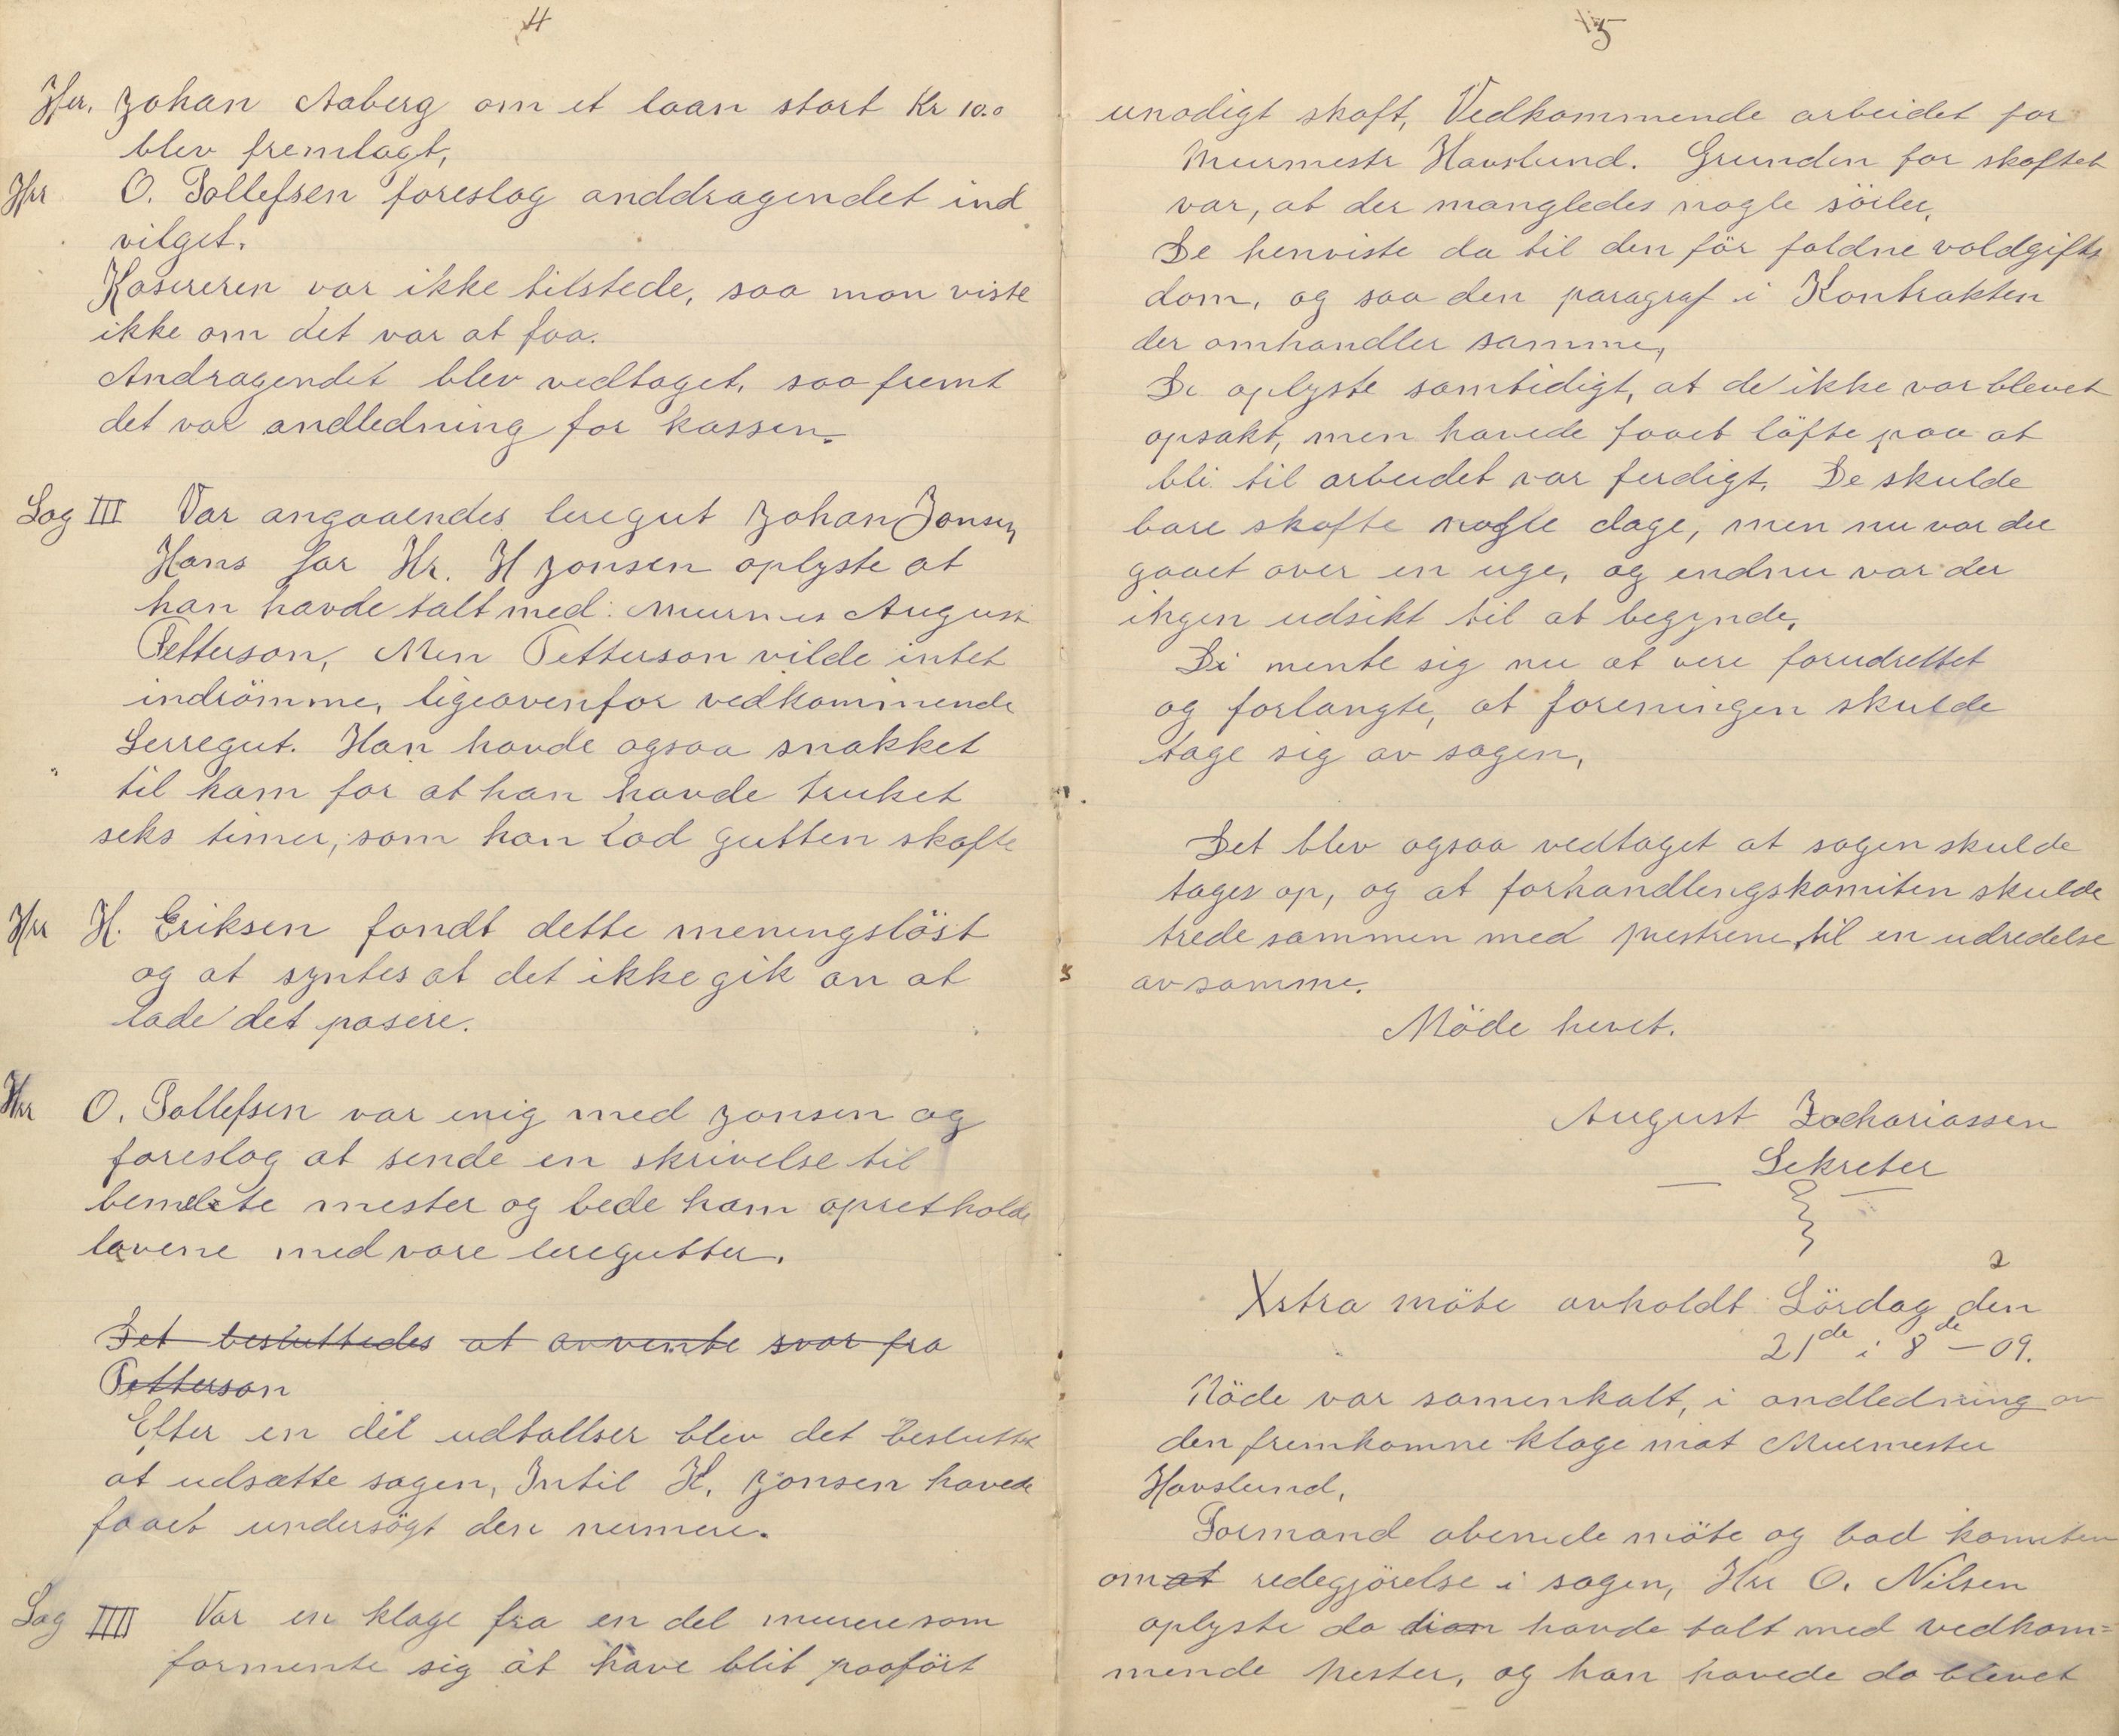 4
Her. Johan Aaberg om et laan stort Kr 10.0
blev fremlagt,
Herr O. Tollefsen foreslog anddragendet ind
vilget.
Kasereren var ikke tilstede, saa man viste
ikke om det var at faa.
Andragendet blev vedtaget, saa fremt
det var andledning for kassen.
Sag III Var angaaendes leregut Johan Jonsen
Hans far Hr. H Jonsen oplyste at
han havde talt med: Murmes August
Petterson, Men Petterson vilde intet
indrömme, ligeovenfor vedkommende
Lerregut. Han havde ogsaa snakket
til ham for at han havde truket
seks timer, som han lod gutten skafte
Herr H. Eriksen fandt dette meningslöst
og at syntes at det ikke gik an at
lade det pasere.
Herr O. Tollefsen var enig med Jonsen og
foreslog at sende en skrivelse til
bemelte mester og bede ham opretholde
lovene med vore leregutter.
Det besluttedes at avvente svar fra
Petterson
Efter en del udtallser blev det besluttet
at udsætte sagen, Intil H. Jonsen havede
faaet undersögt den nermere.
Sag IIII Var en klage fra en del murere som
formente sig at have blit paafört
5
unodigt skaft, Vedkommende arbeidet for
Murmestr Havslund. Grunden for skaftet
var, at der mangledes nogle söiler,
De henviste da til den för faldne voldgifts
dom, og saa den paragraf i Kontrakten
der omhandler samme,
De oplyste samtidigt, at de ikke var blevet
opsakt, men havede faaet löfte paa at
bli til arbeidet var ferdigt. De skulde
bare skafte nogle dage, men nu var der
gaaet over en uge, og endnu var der
ingen udsikt til at begynde,
Di mente sig nu at vere forudrettet
og forlangte, at foreningen skulde
tage sig av sagen,
Det blev ogsaa vedtaget at sagen skulde
tages op, og at forhandlingskomiten skulde
trede sammen med mestrene, til en udredelse
av samme.
Möde hevet.
August Zachariassen
Sekreter
Xstra möte avholdt Lördag den
21de i 8de – 09.
Möde var samenkalt, i andledning av
den fremkomne klage mot Murmester
Havslund,
Formand abenede möte og bad komiten
om at redegjörelse i sagen, Herr O. Nilsen
oplyste da havde talt med vedkom=
mende Mester, og han havede da blevet